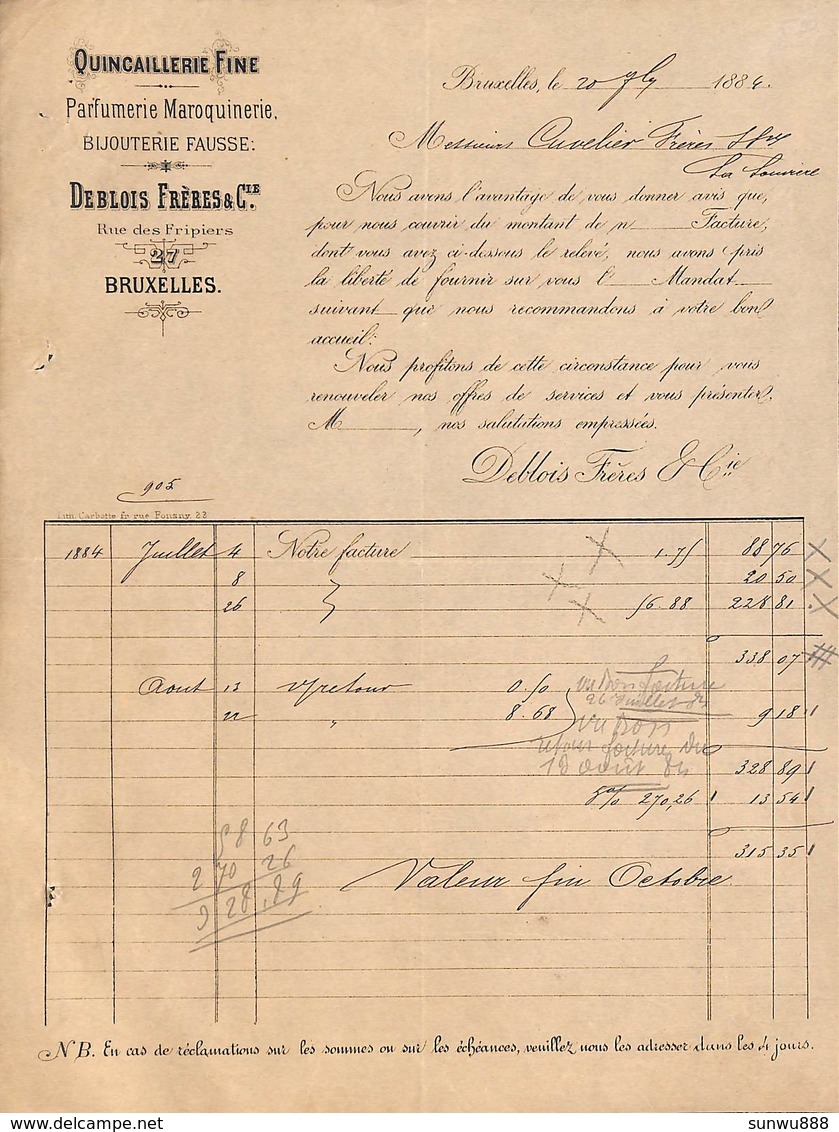 QUINCAILLERIE FINE
Parfumerie Maroquinerie,
BIJOUTERIE FAUSSE:
DEBLOIS FRÈRES & CIE.
Rue des Fripiers
27
BRUXELLES.
Bruxelles, le 20 7bre 1884.
Messieurs Cuvelier Frères
La Louviere
Nous avons l'avantage de vous donner avis que,
pour nous couvrir du montant de n Facture,
dont vous avez ci-dessous le relevé, nous avons pris
la liberté de fournir sur vous l Mandat
suivant que nous recommandons à votre bon
accueil:
Nous profitons de cette circonstance pour vous
renouveler nos offres de services et vous présenter,
M , nos salutations empressées.
Deblois Frères & Cie
905
Lith. Carbotte fr. rue Fonsny, 23
1884 Juillet 4 Notre facture 1.75 88 76
8 20 50
26 56.88 228 81
338 07
Aout 13 v/retour 0.50
22 " 8.68 9 18
vu bon facture
26 Juillet 84
vu bon
retour facture du
18 août 84
328 89
5% 270,26 13 54
315 35
58 63
270 26
328,89
Valeur fin Octobre
NB. En cas de réclamations sur les sommes ou sur les échéances, veuillez nous les adresser dans les 4 jours.
www.delcampe.net
sunwu888